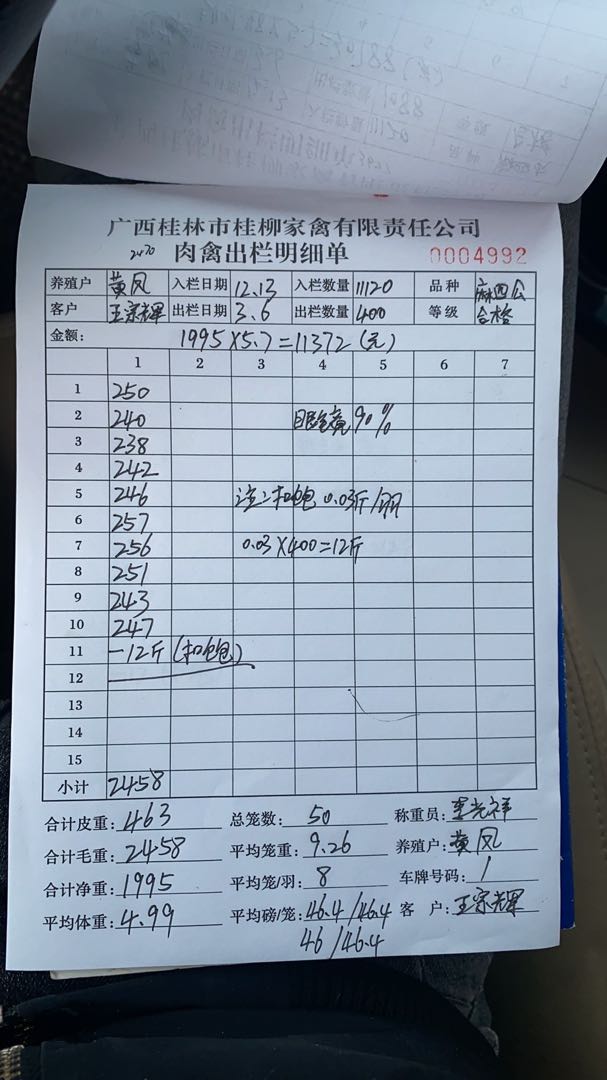 广西桂林市桂柳家禽有限责任公司
2470 肉禽出栏明细单 0004992
养殖户 黄凤 入栏日期 12.13 入栏数量 11120 品种 麻四公
客户 王宗辉 出栏日期 3.6 出栏数量 400 等级 合格
金额: 1995×5.7=11372(元)
1 2 3 4 5 6 7
1 250
2 240 90%
3 238
4 242
5 246 注:扣饱 0.03斤/羽
6 257
7 256 0.03×400=12斤
8 251
9 243
10 247
11 -12斤(扣饱)
12
13
14
15
小计 2458
合计皮重: 463 总笼数: 50 称重员: 光祥
合计毛重: 2458 平均笼重: 9.26 养殖户: 黄凤
合计净重: 1995 平均笼/羽: 8 车牌号码: 1
平均体重: 4.99 平均磅/笼: 46.4/46.4 客户: 王宗辉
46/46.4